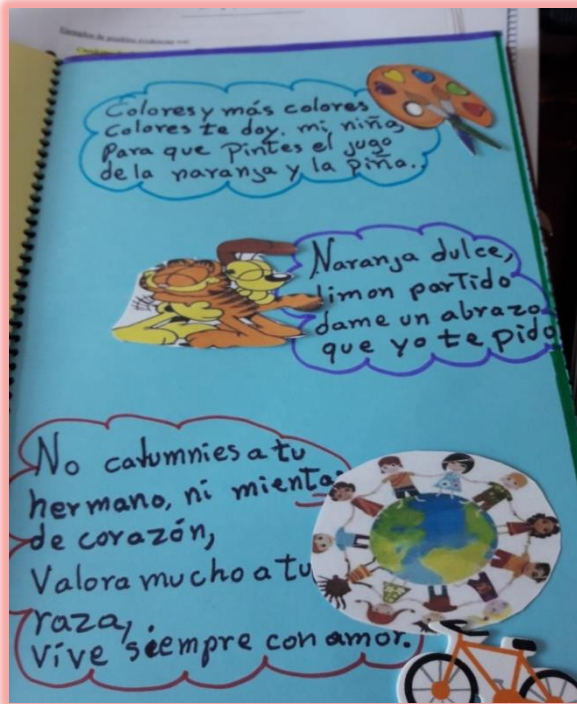 Colores y más colores
Colores te doy, mi niña,
Para que Pintes el jugo
de la naranja y la piña.
Naranja dulce,
limon partido
dame un abrazo
que yo te pido
No calumnies a tu
hermano, ni mientas
de corazón,
Valora mucho a tu
raza,
vive siempre con amor.